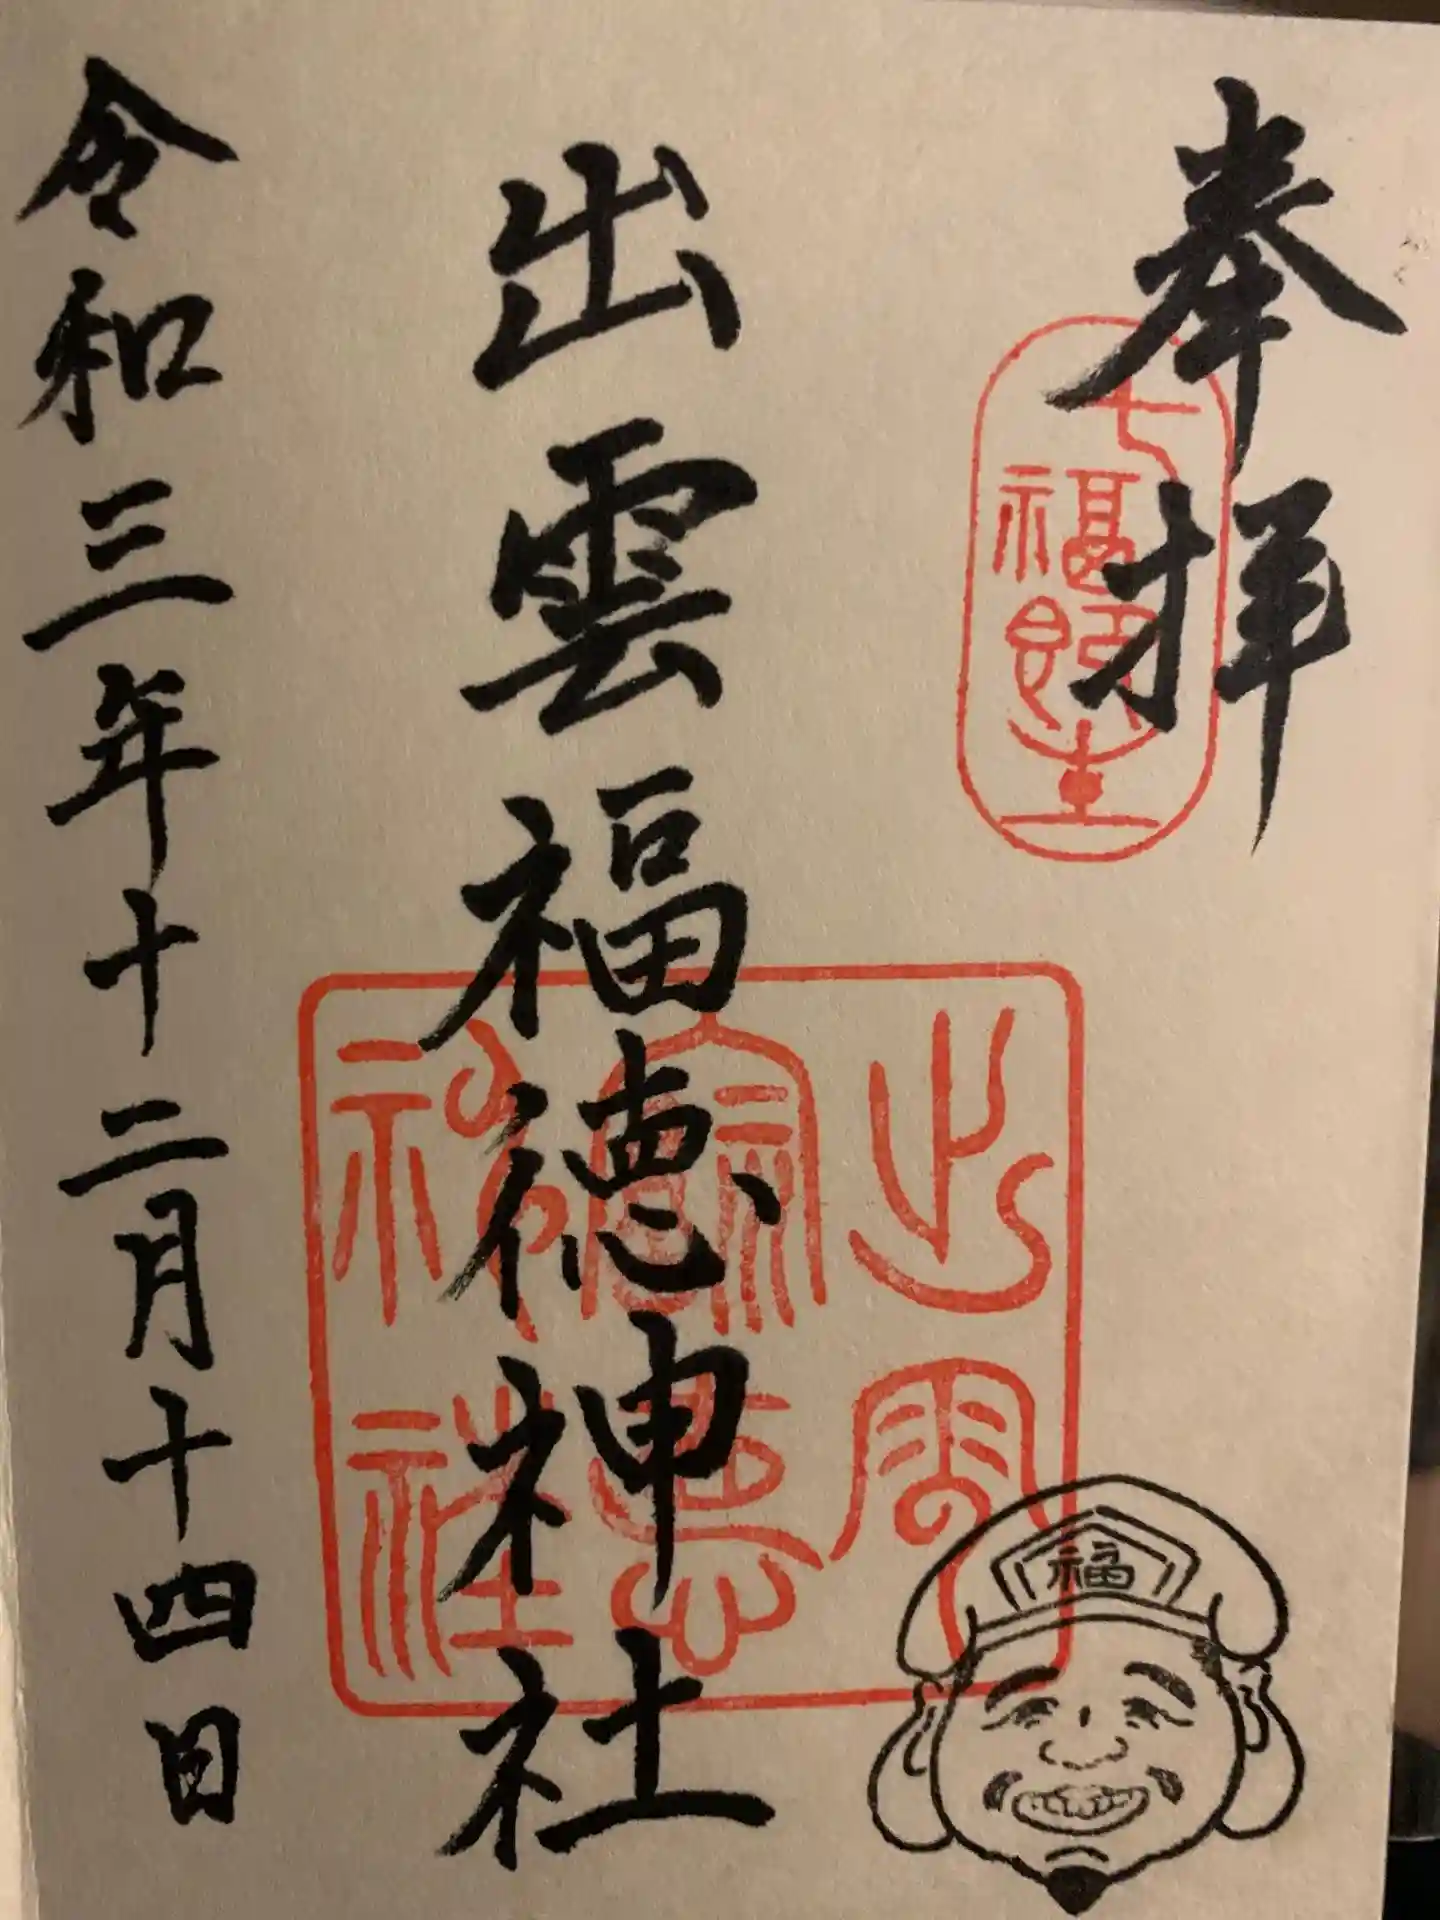 奉拝
七福殿主
出雲福徳神社
出雲福徳神社
福
令和三年十二月十四日